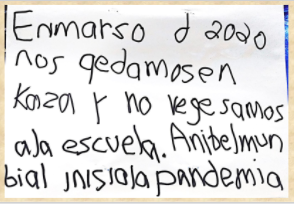 Enmarso d 2020
nos qedamosen
Kaza y no regesamos
ala escuela. Anibelmun
bial inisiala pandemia